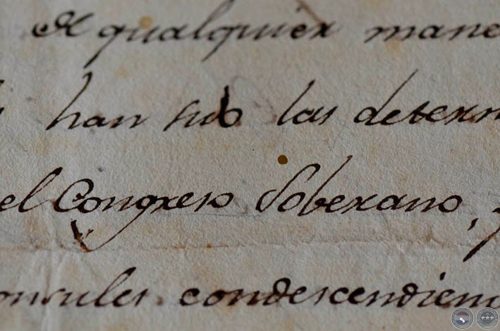 De qualquier mane
han sido las determ
el Congreso Soberano,
onsules condescendien